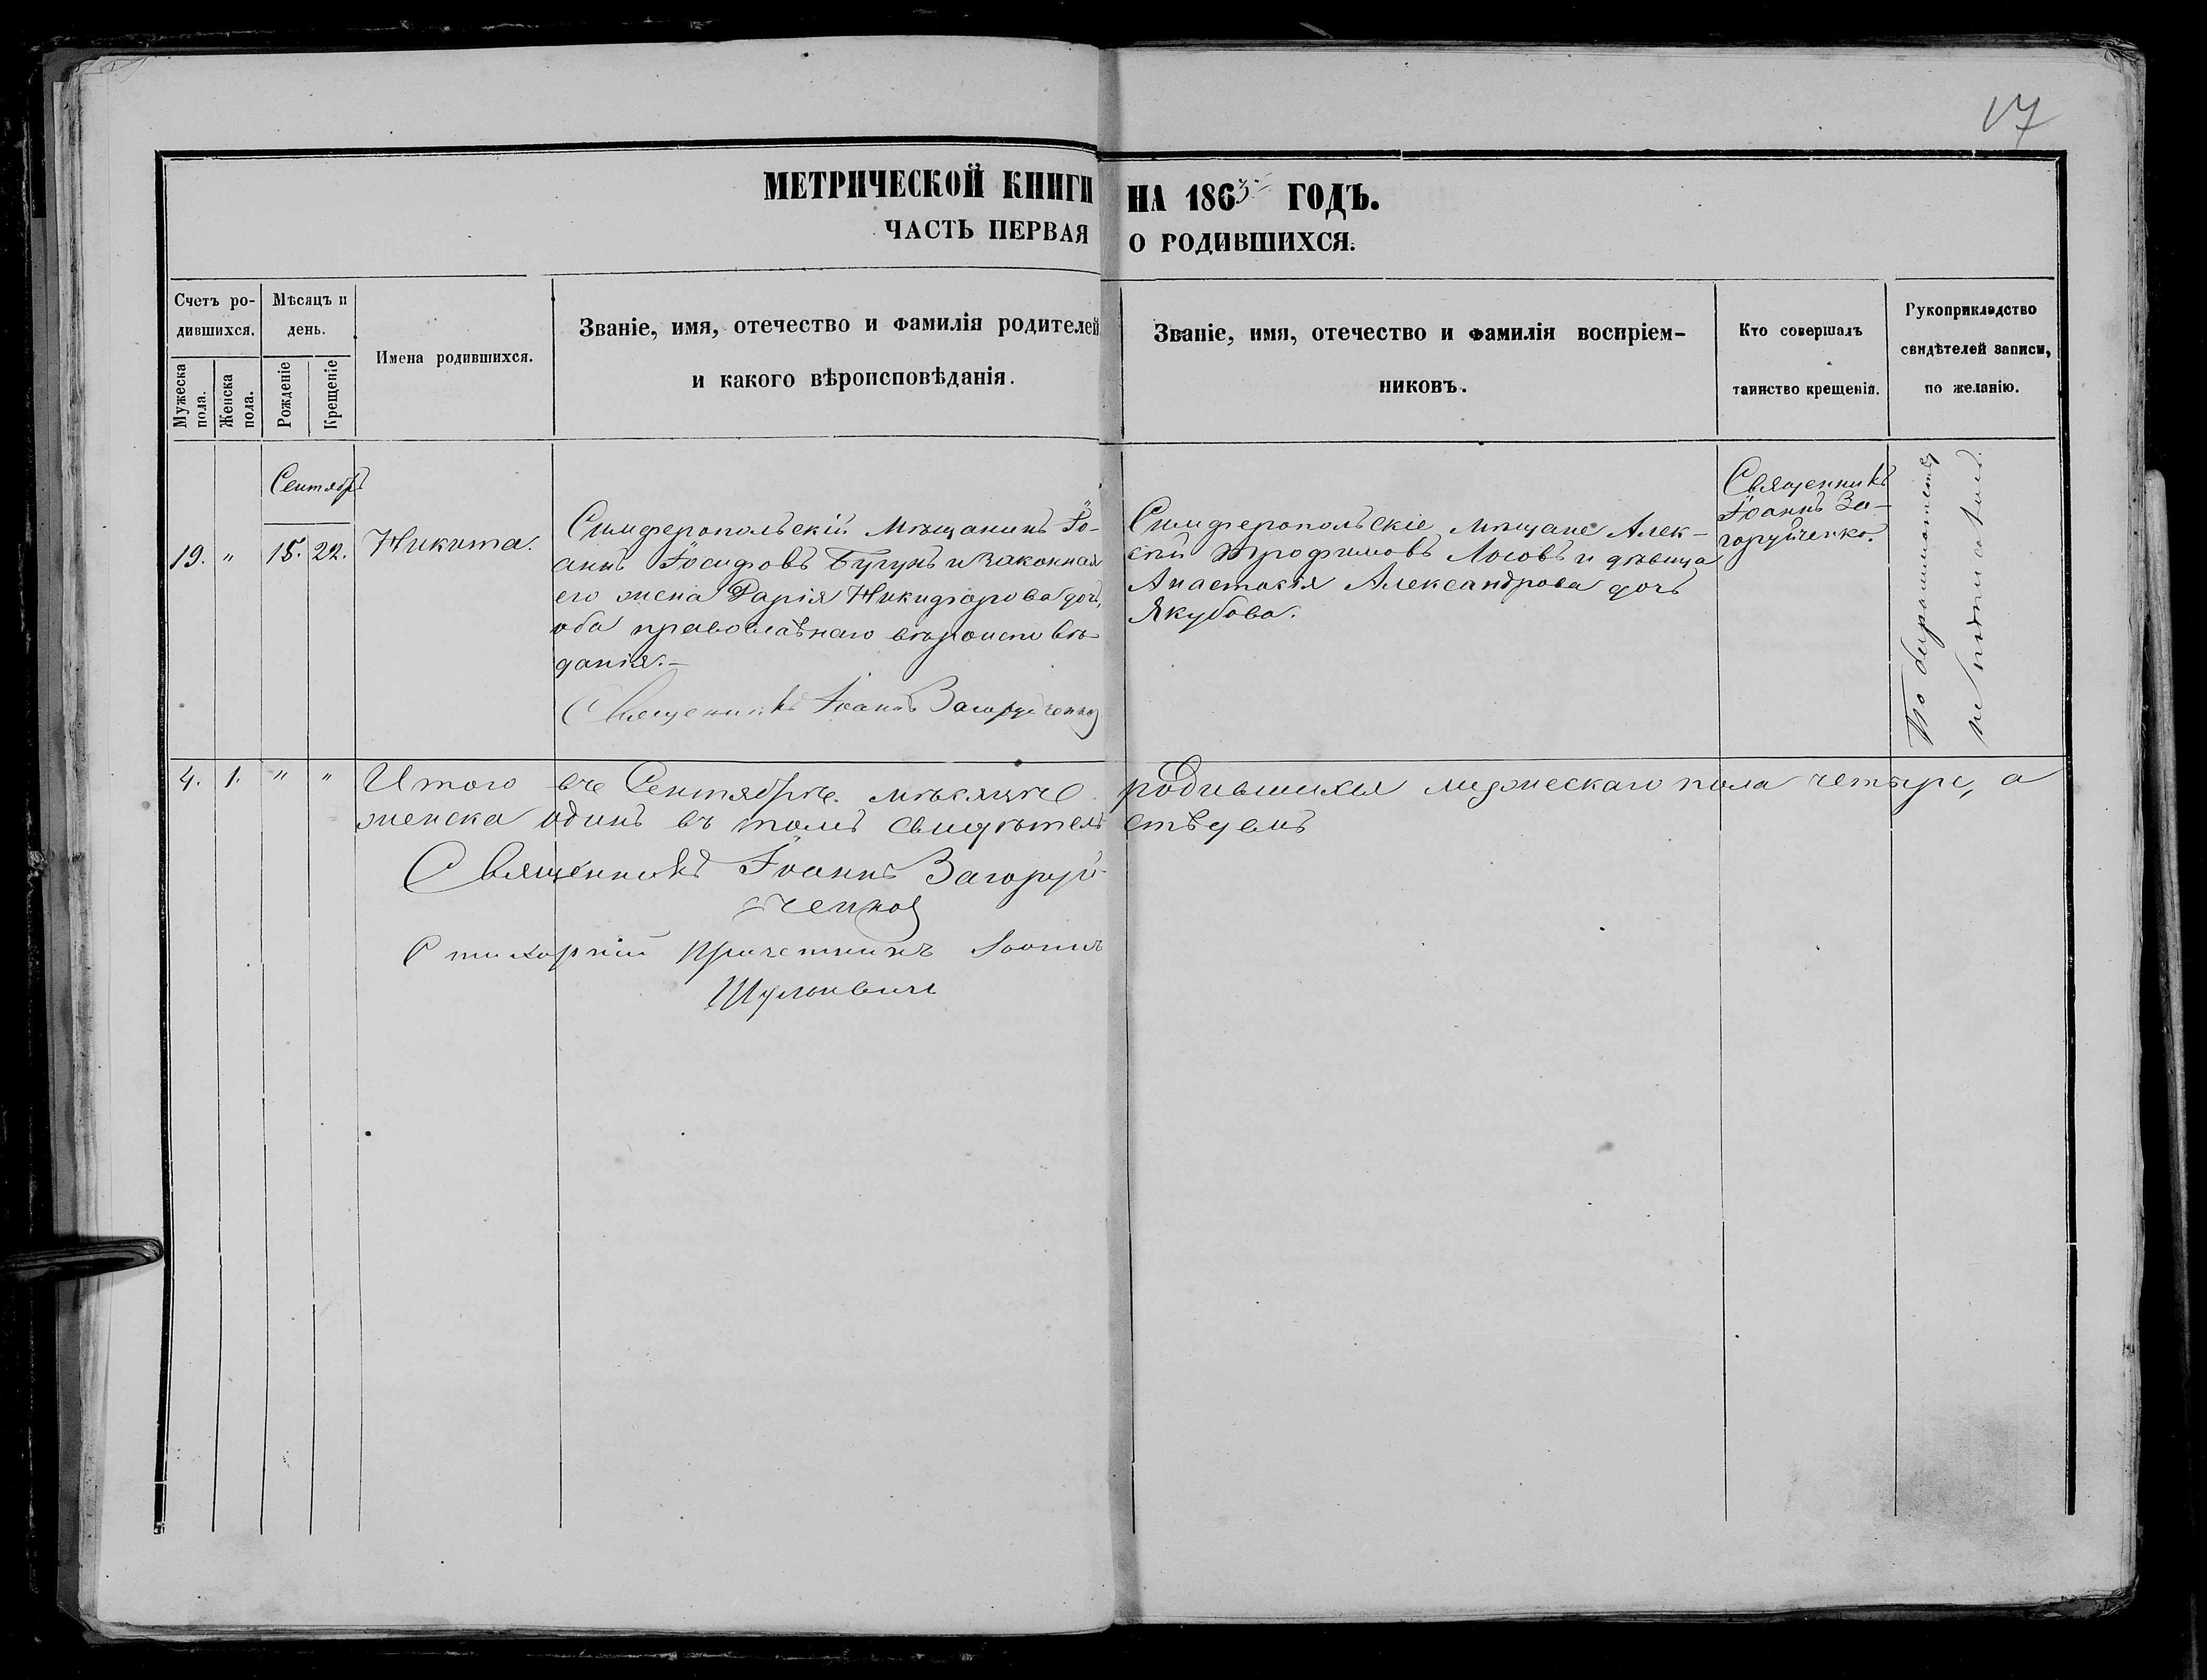 17
МЕТРИЧЕСКОЙ КНИГИ НА 1863 ГОДЪ.
ЧАСТЬ ПЕРВАЯ О РОДИВШИХСЯ.
Счетъ ро-
дившихся.
Мужеска
пола.
Женска
пола.
Мѣсяцъ и
день.
Рожденіе
Крещеніе
Имена родившихся.
Званіе, имя, отечество и фамилія родителей
и какого вѣроисповѣданія.
Званіе, имя, отечество и фамилія воспріем-
никовъ.
Кто совершалъ
таинство крещенія.
Рукоприкладство
свидѣтелей записи,
по желанію.
Сентябрь
19. " 15. 22. Никита.
Симферопольскій Мѣщанинъ Іо-
аннъ Іосифовъ Бугунъ и законная
его жена Дарія Никифорова дочь,
оба православнаго вѣроисповѣ-
данія.-
Священникъ Іоаннъ Загоруйченко
Симферопольскіе Мѣщане Алек-
сѣй Трофимовъ Лосовъ и дѣвица
Анастасія Александрова дочь
Якубова.
Священникъ
Іоаннъ За-
горуйченко.
По безграмотству
не подписались.
4. 1. " " Итого въ Сентябрѣ мѣсяцѣ родившихся мужескаго пола четыре, а
женска одинъ въ томъ свидѣтельствуемъ
Священникъ Іоаннъ Загоруй-
ченко
Стихарній Причетникъ Іоаннъ